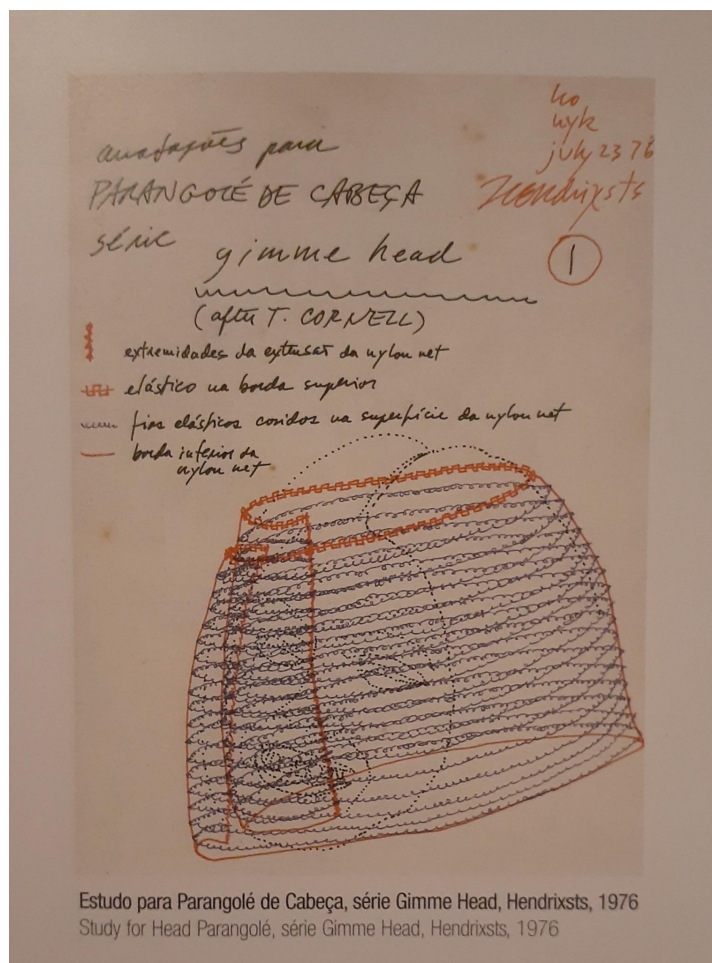 ho
nyk
july 23 76
Hendrixsts
1
anotações para
PARANGOLÉ DE CABEÇA
série gimme head
(after T. CORNELL)
extremidades da extensão da nylon net
elástico na borda superior
fios elásticos cosidos na superfície da nylon net
borda inferior da
nylon net
Estudo para Parangolé de Cabeça, série Gimme Head, Hendrixsts, 1976
Study for Head Parangolé, série Gimme Head, Hendrixsts, 1976